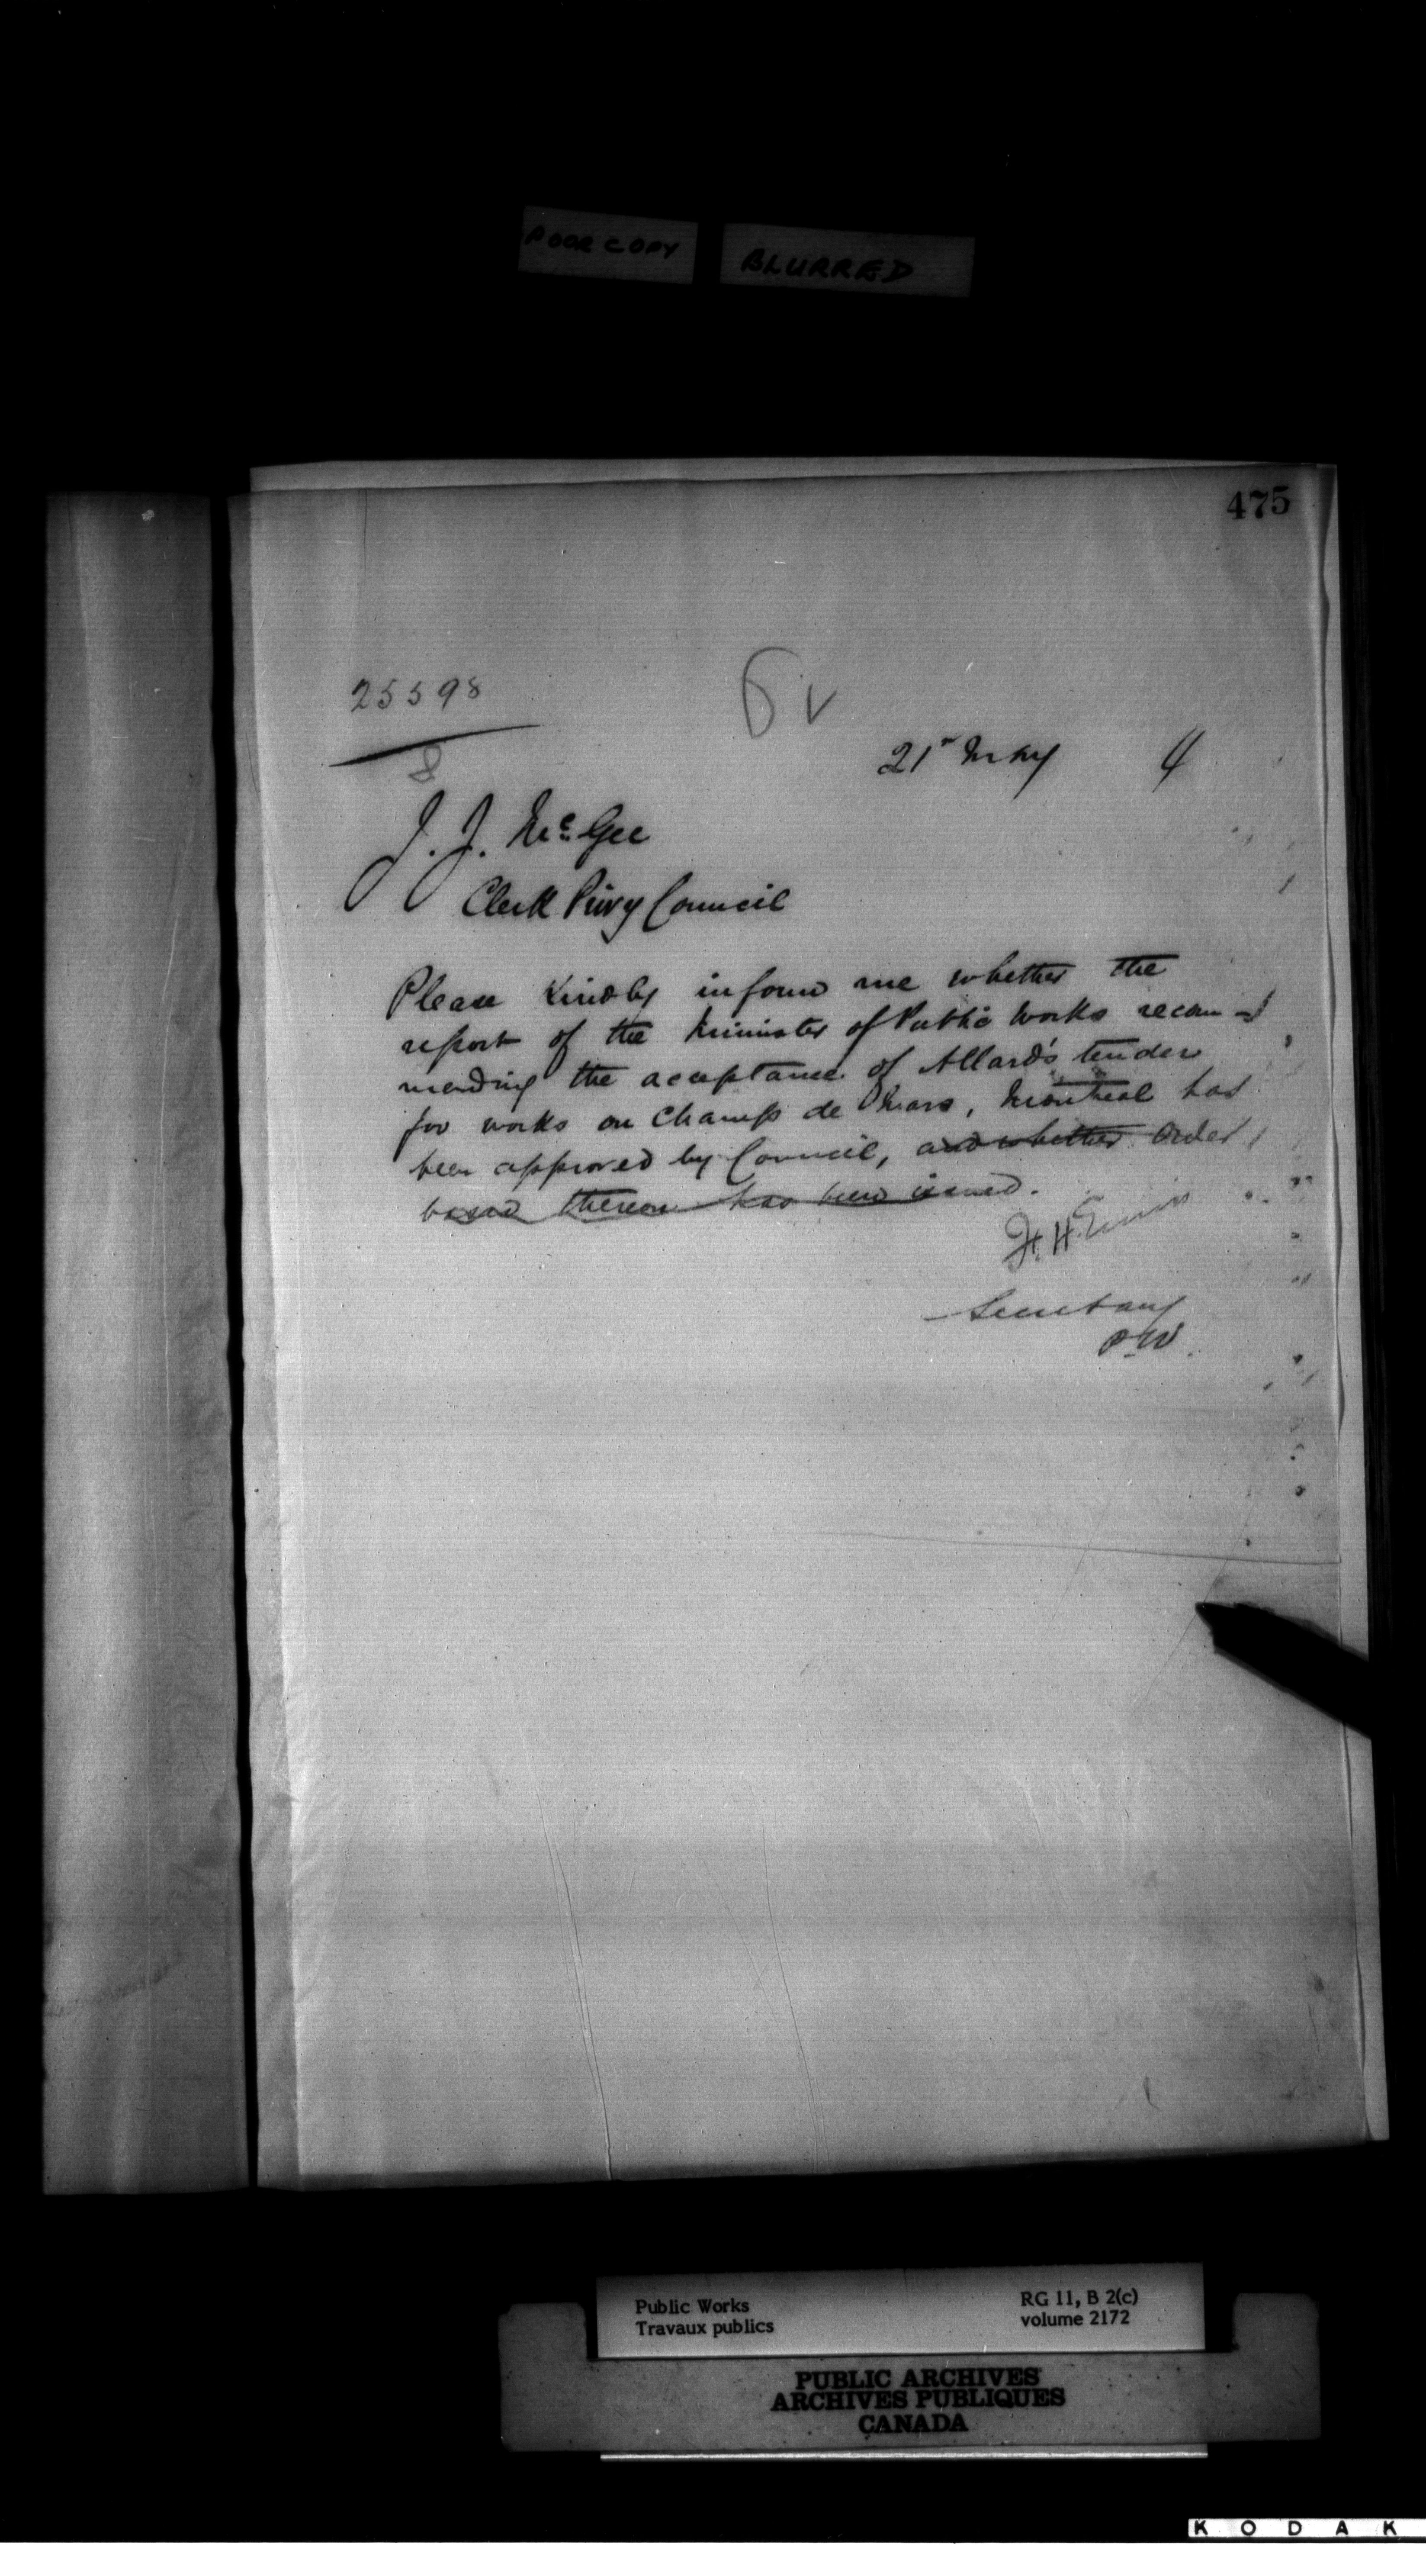 POOR COPY BLURRED
475
25598
8
21st May 4
J. J. McGee
Clerk Privy Council
Please Kindly inform me whether the
report of the Minister of Public Works recom-
mending the acceptance of Allard's tender
for works on Champ de Mars, Montreal has
been approved by Council, and whether Order
based thereon has been issued.
F. H. Ennis
Secretary
P.W.
Public Works
Travaux publics
RG 11, B 2(c)
volume 2172
PUBLIC ARCHIVES
ARCHIVES PUBLIQUES
CANADA
KODAK